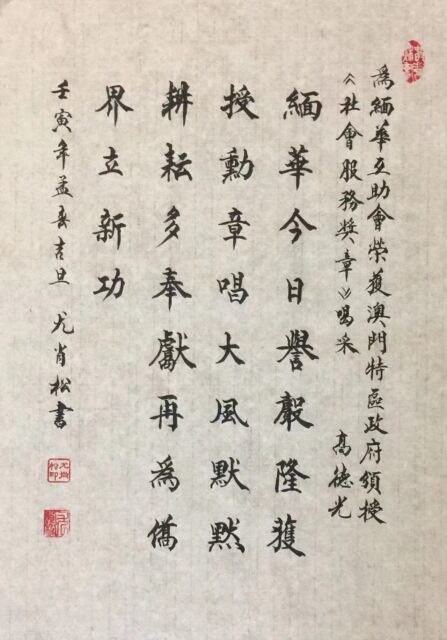 為緬華互助會榮獲澳門特區政府頒授
《社會服務獎章》喝采　高德光
緬華今日譽聲隆獲
授勳章唱大風默默
耕耘多奉獻再為僑
界立新功
壬寅年孟春吉旦　尤肖松書